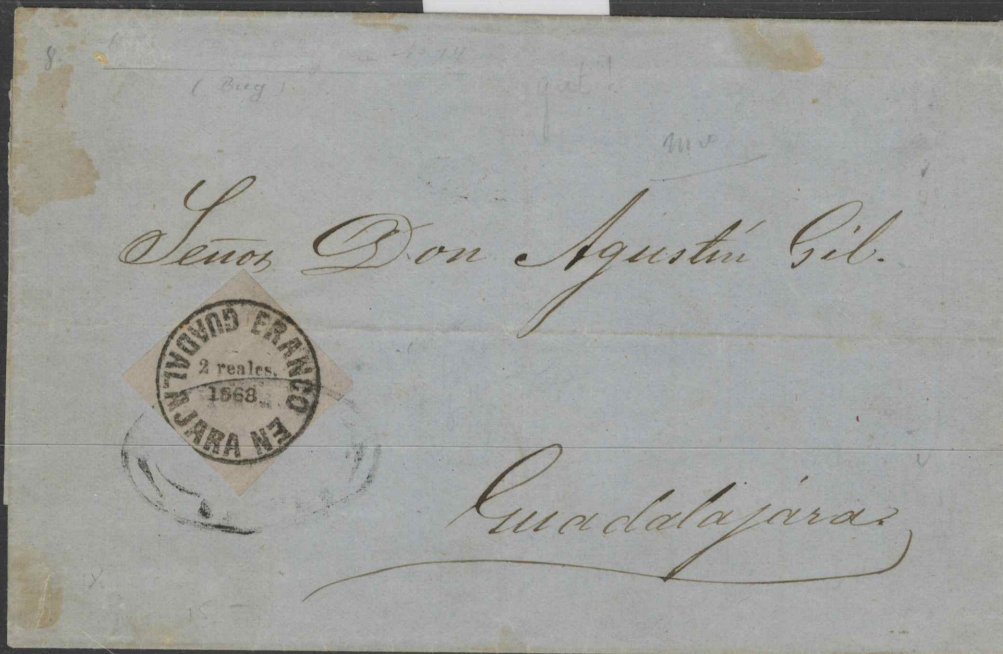 8
(Bug)
Señor Don Agustín Gil.
FRANCO EN GUADALAJARA
2 reales.
1868.
Guadalajara.